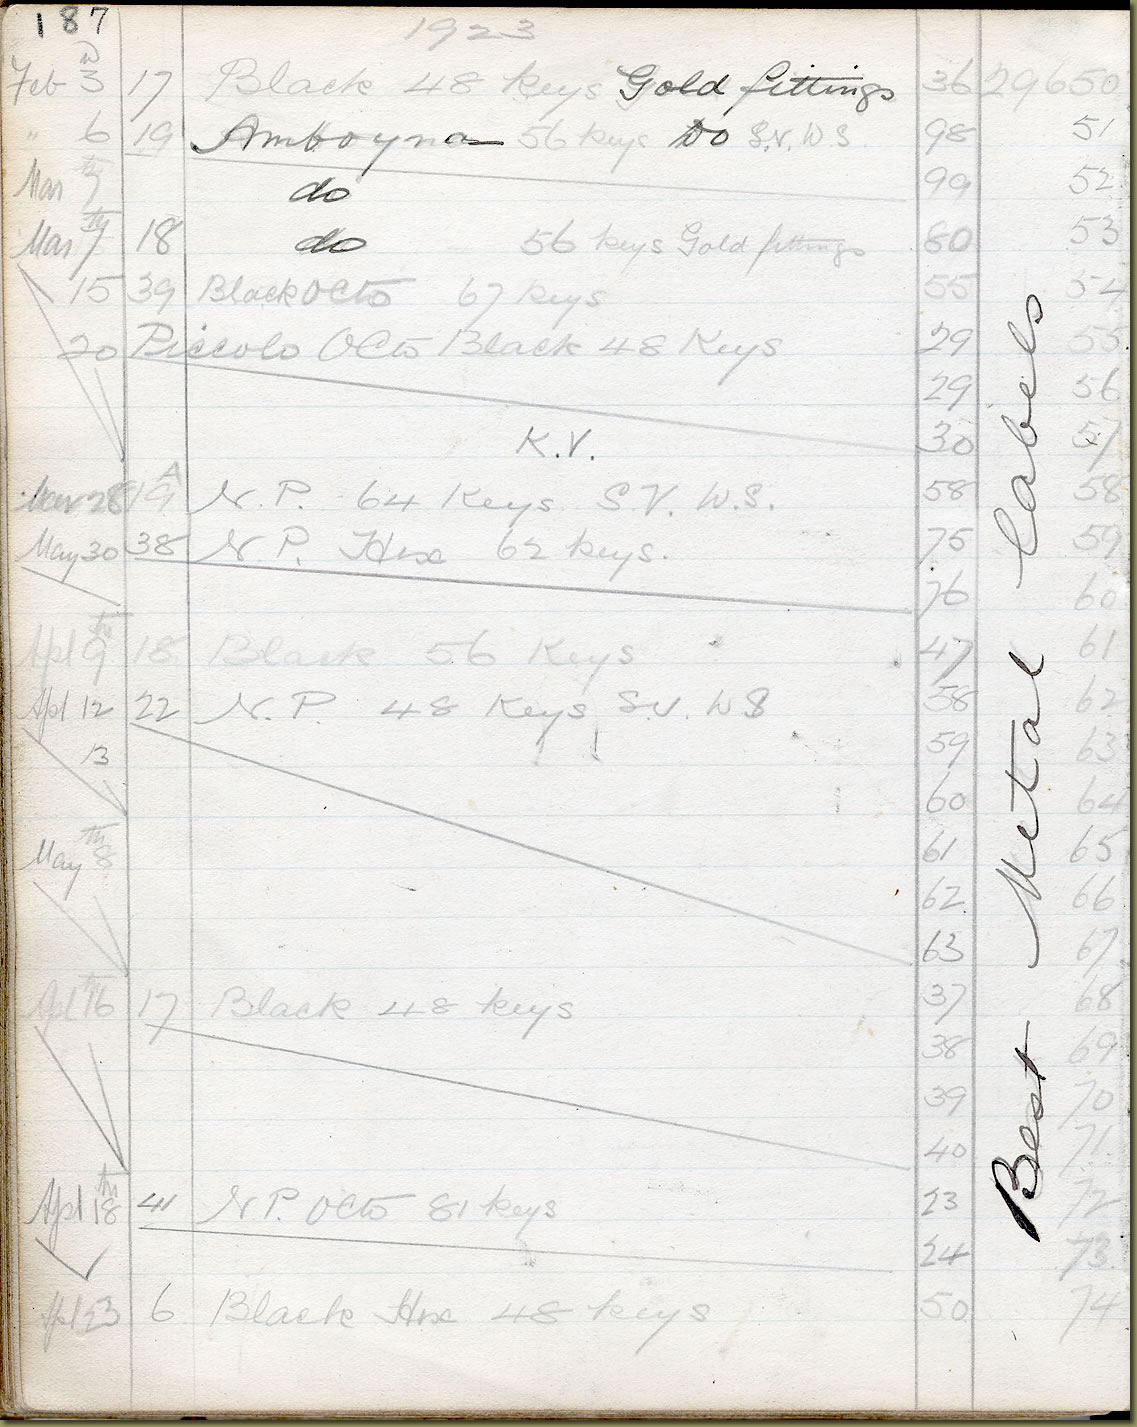 187
1923
Feb 3rd 17 Black 48 keys Gold fittings 36 29650
" 6 19 Amboyna 56 keys Do S.V. W.S. 98 51
Mar 7th do 99 52
Mar 7th 18 do 56 keys Gold fittings 80 53
15 39 Black Octo 67 keys 55 54
20 Piccolo Octo Black 48 Keys 29 55
29 56
K.V. 30 57
Mar 28 19A N.P. 64 Keys S.V. W.S. 58 58
May 30 38 N.P. Hex 62 keys. 75 59
76 60
Apl 9th 18 Black 56 Keys 47 61
Apl 12 22 N.P. 48 Keys S.V. W S 58 62
13 59 63
60 64
May 8th 61 65
62 66
63 67
Apl 16th 17 Black 48 keys 37 68
38 69
39 70
40 71
Apl 18th 41 N.P. Octo 81 keys 23 72
24 73
Apl 23 6 Black Hex 48 keys 50 74
Best Metal Labels